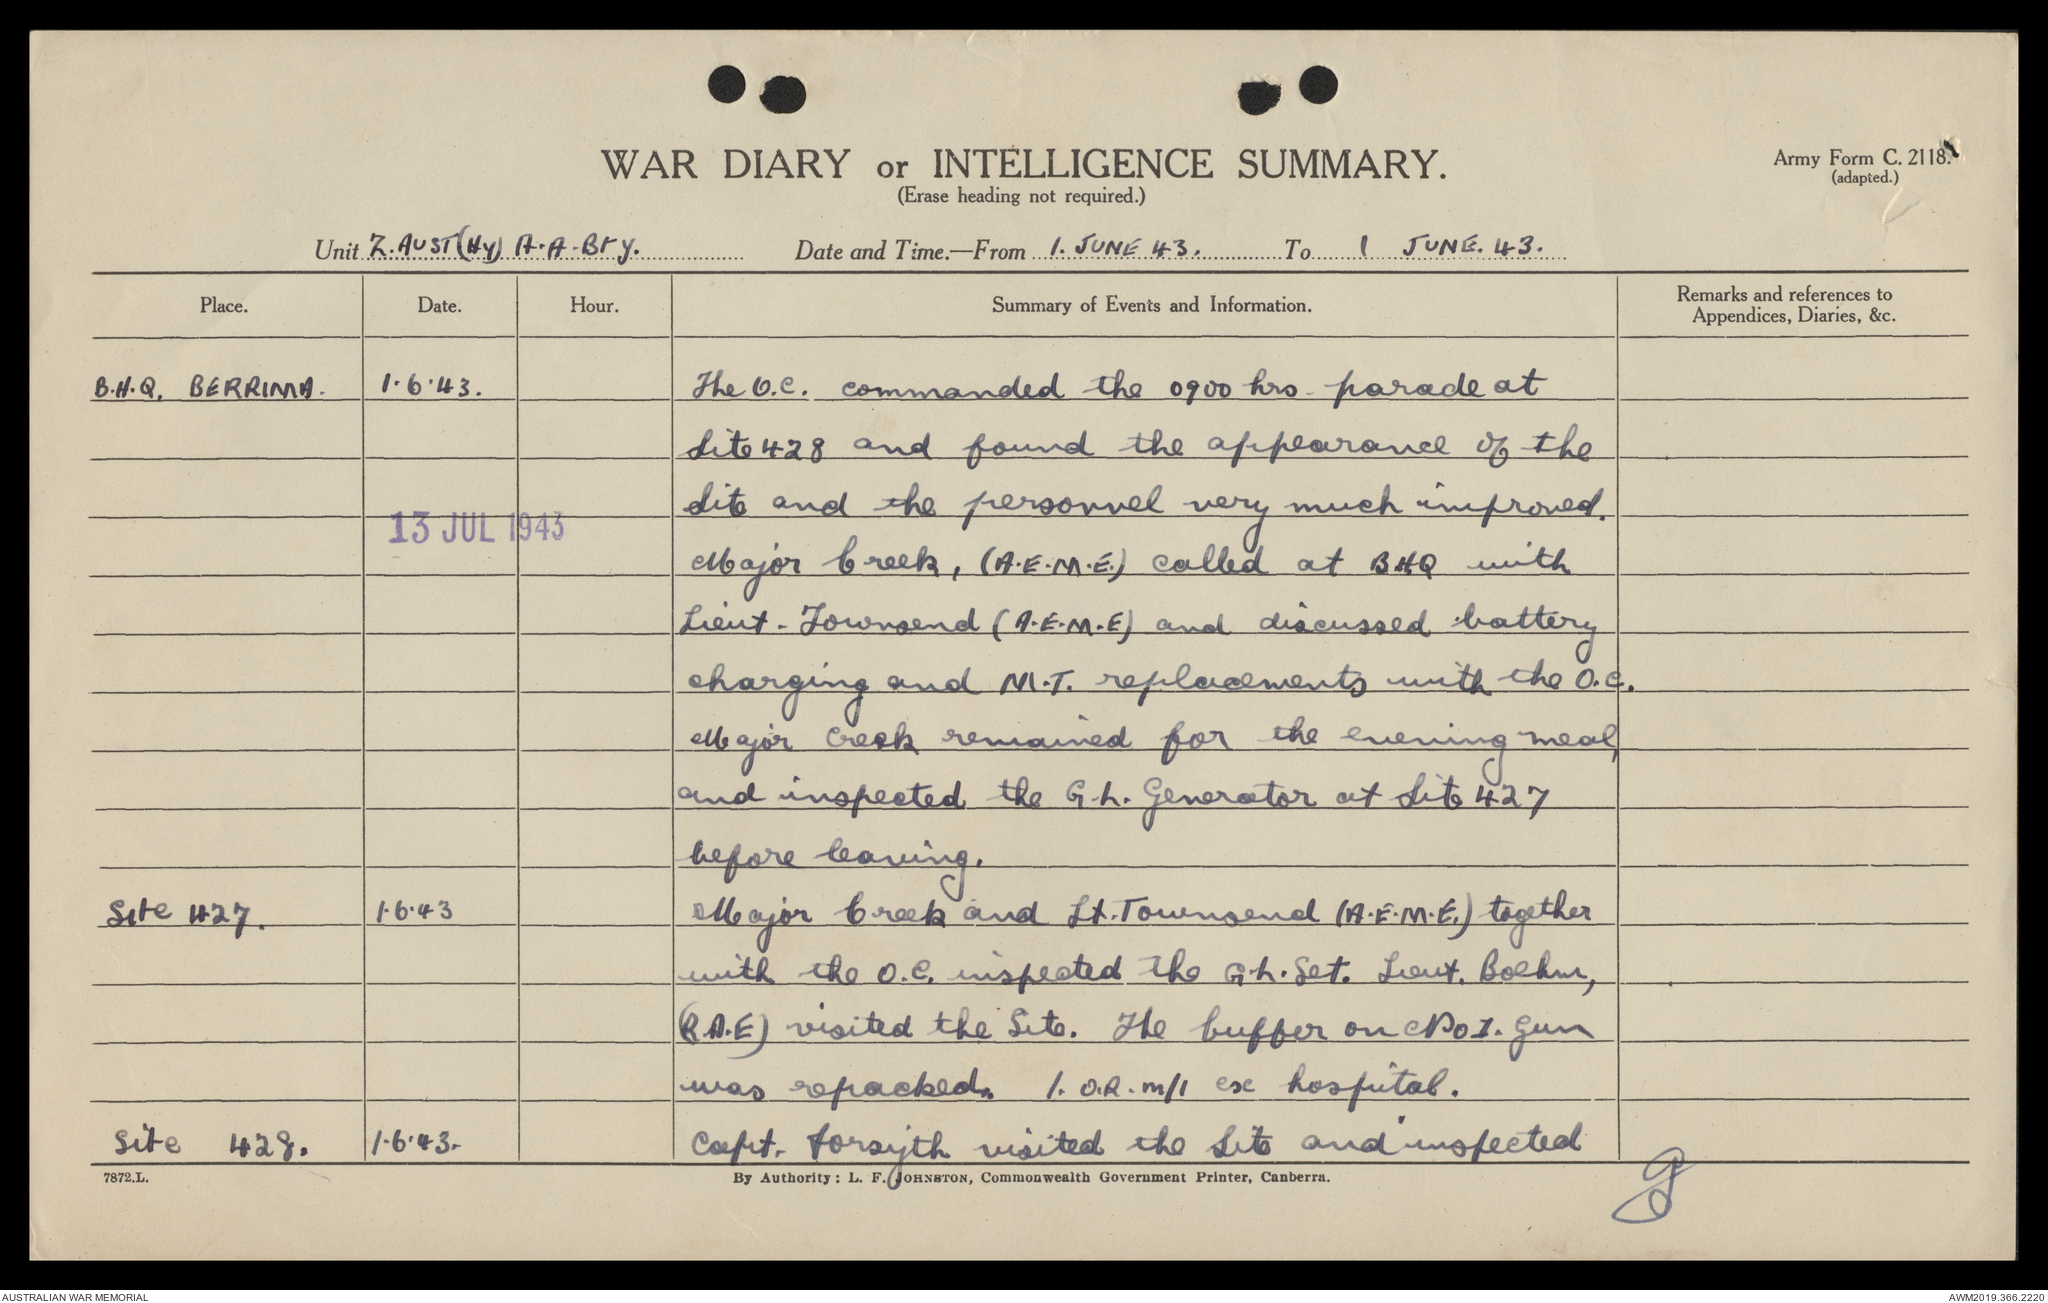 WAR DIARY or INTELLIGENCE SUMMARY.
(Erase heading not required.)
Army Form C. 2118.
(adapted.)
Unit 2. AUST (Hy) A.A. Bty. Date and Time.—From 1. JUNE 43. To 1 JUNE. 43.
Place. Date. Hour. Summary of Events and Information. Remarks and references to Appendices, Diaries, &c.
B.H.Q. BERRIMA. 1.6.43. The O.C. commanded the 0900 hrs parade at
Site 428 and found the appearance of the
Site and the personnel very much improved.
13 JUL 1943
Major Creek, (A.E.M.E.) called at BHQ with
Lieut. Townsend (A.E.M.E) and discussed battery
charging and M.T. replacements with the O.C.
Major Creek remained for the evening meal,
and inspected the G.L. Generator at Site 427
before leaving.
Site 427. 1.6.43 Major Creek and Lt. Townsend (A.E.M.E.) together
with the O.C. inspected the G.L. Set. Lieut. Boehm,
(R.A.E) visited the Site. The buffer on No 1. Gun
was repacked. 1. O.R. m/i ex hospital.
Site 428. 1.6.43. Capt. Forsyth visited the Site and inspected
7872.L. By Authority: L. F. JOHNSTON, Commonwealth Government Printer, Canberra.
AUSTRALIAN WAR MEMORIAL AWM2019.366.2220